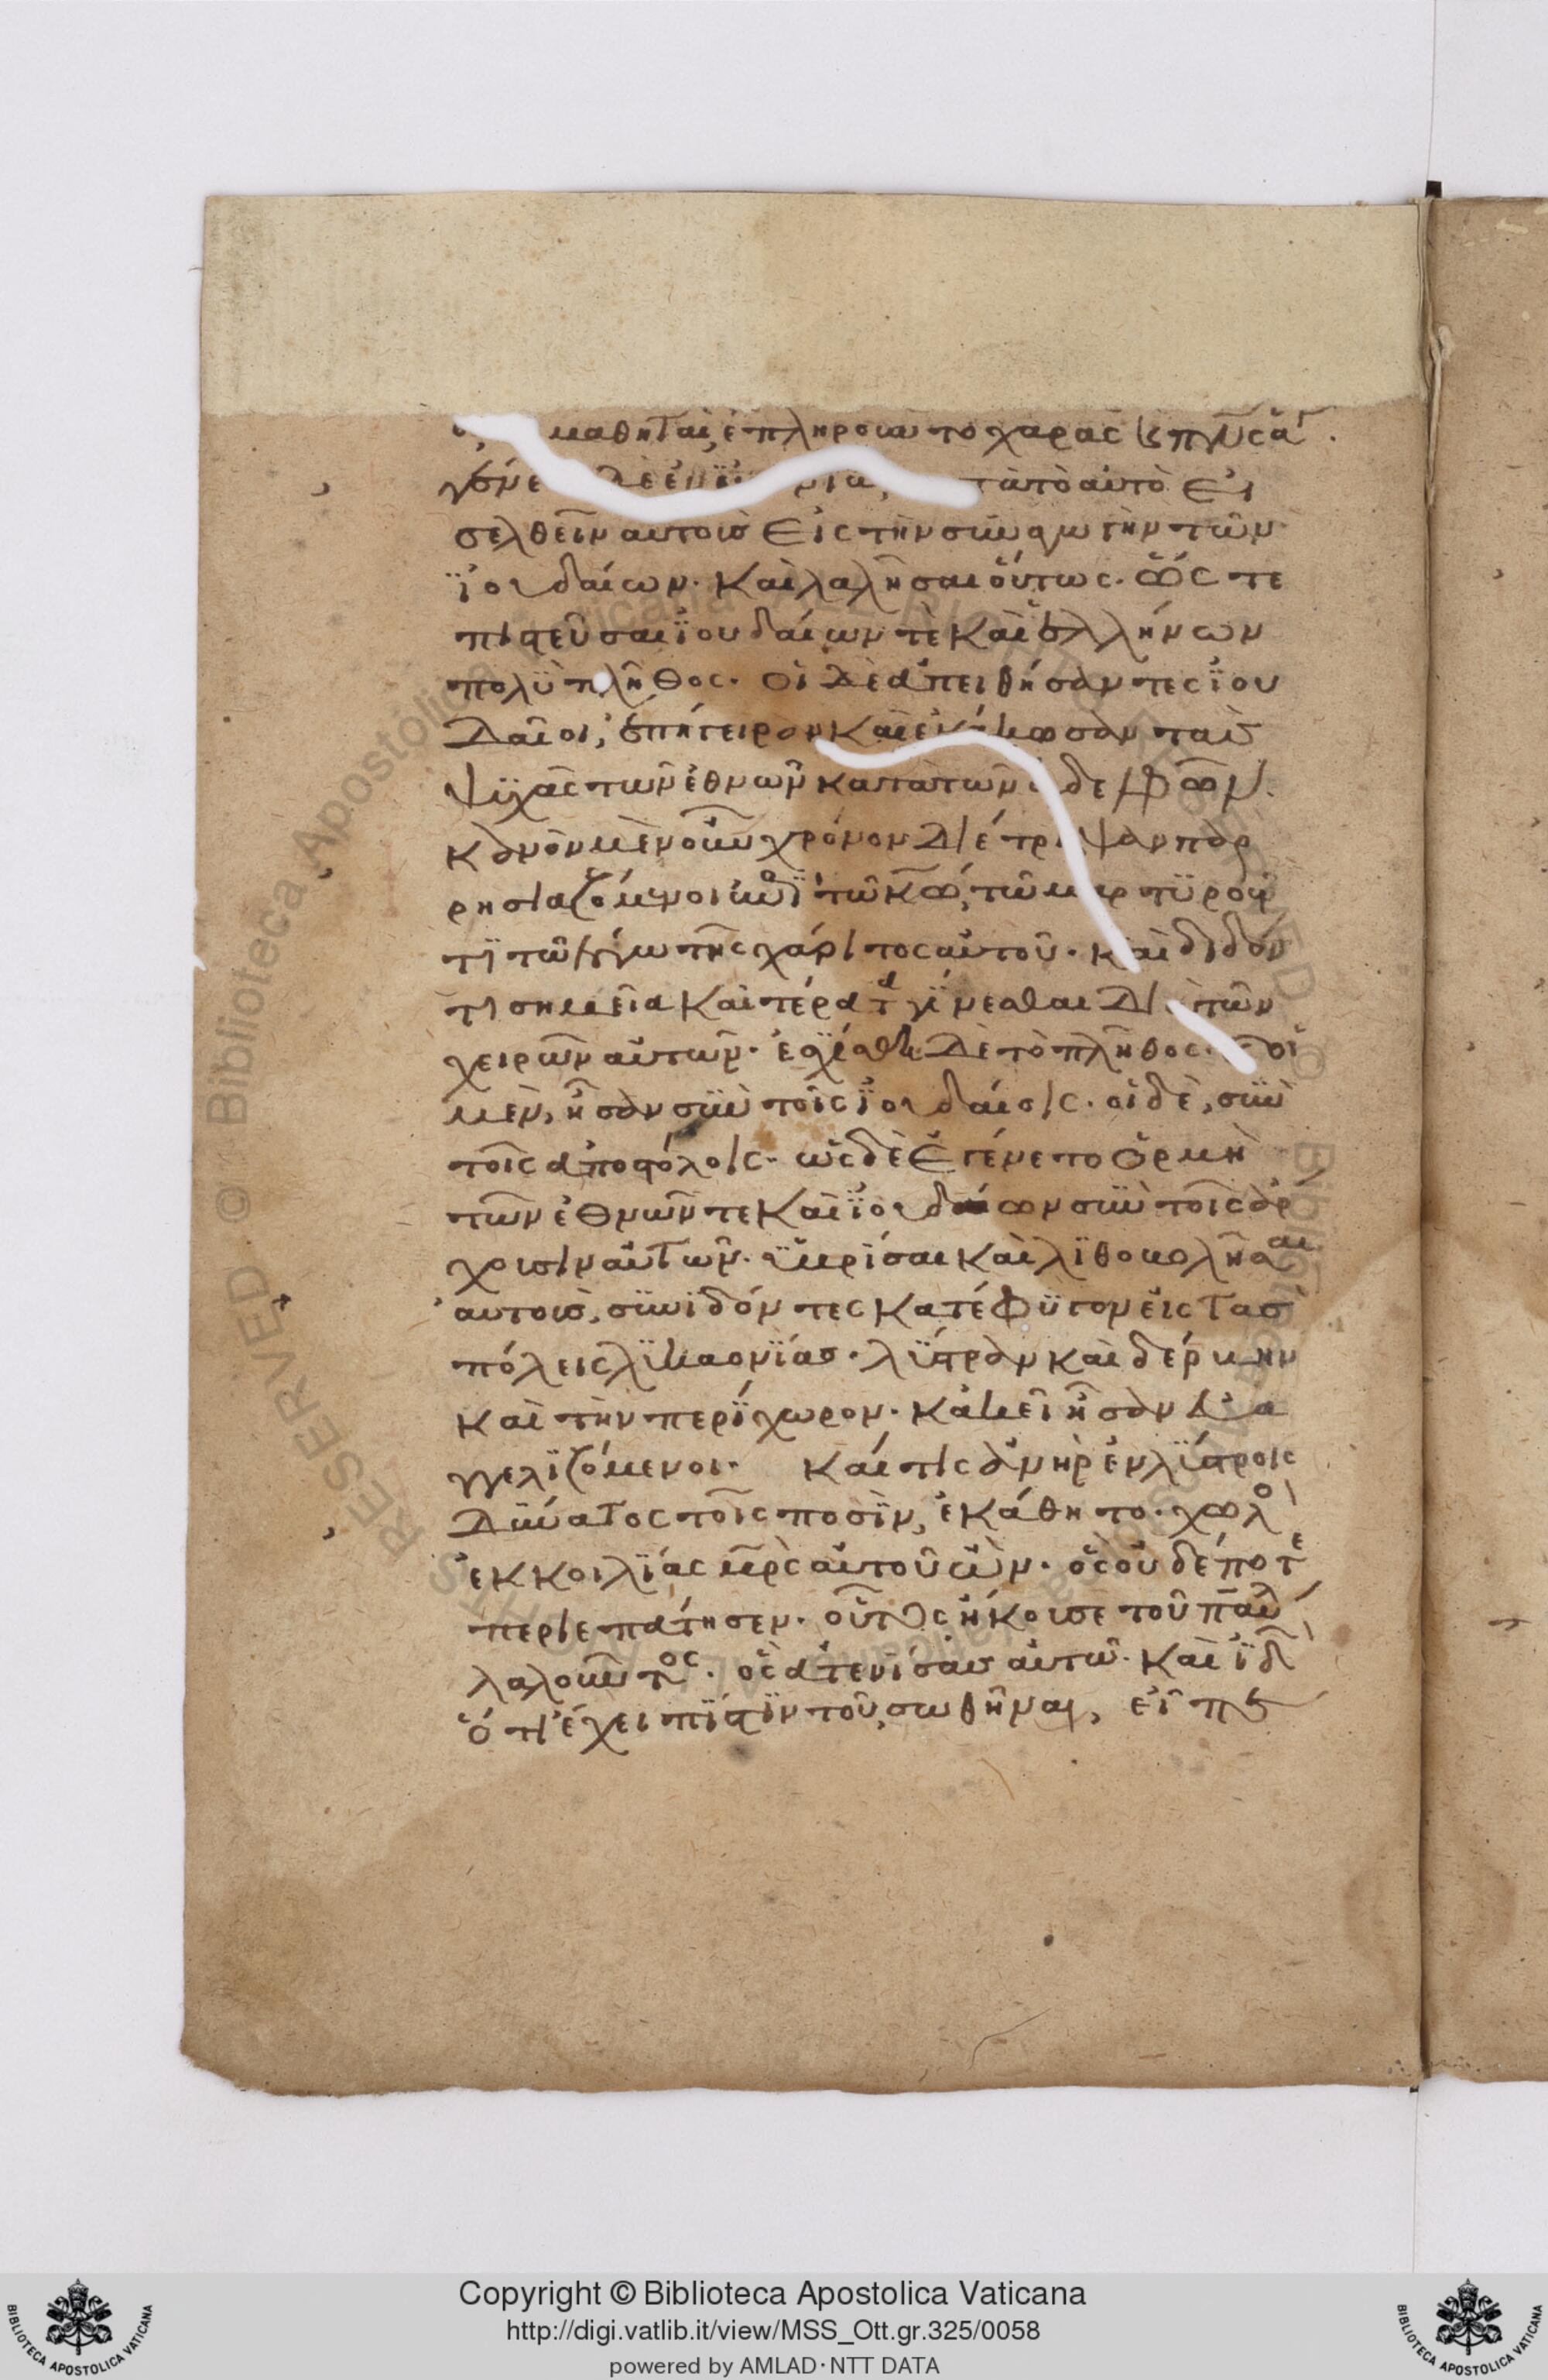 μαθηταὶ, ἐπληροῦντο χαρᾶς κ πνς ἁγ.
ἐγένε δὲ ἐν ϊκο νίω, κατὰτὸαὐτὸ εἰ
σελθεῖν αυτοὺσ εἰς τὴν συναγωγὴν τῶν
ϊουδαίων. καὶ λαλῆσαι οὕτως. ὥς τε
πιστεῦσαι ϊουδαίων τὲ καὶ ἑλλήνων
πολὺ πλῆθος. οἱ δὲ ἀπειθήσαντες ϊου
δαῖοι, ἐπήγειραν καὶ ἐκάκωσαν τὰσ
ψϋχὰς τῶν ἐθνῶν κατὰ τῶν ἀδελφῶν.
ϊκανὸν μὲν οὖν χρόνον διέτριψαν παρ
ρησιαζόμενοι ἐπὶ τῶ κω, τῶ μαρτϋροῦν
τι τῶ λόγω τῆς χάριτος αὐτοῦ. καὶ διδόν
τι σημεῖα καὶ τέρατα γίνεσθαι διὰ τῶν
χειρῶν αὐτῶν. ἐσχίσθη δὲ τὸ πλῆθος. κ οἱ
μὲν, ἦσαν σὺν τοῖς ϊουδαίοις. οἱ δὲ, σὺν
τοῖς ἀποστόλοις. ὡς δὲ ἐγένετο ὁρμὴ
τῶν ἐθνῶν τε καὶ ϊουδαίων σὺν τοῖς ἄρ
χουσιν αὐτῶν. ὑβρίσαι καὶ λϊθοβολῆσαι
αυτοὺσ, συνιδόντες κατέφϋγον εἰς τὰσ
πόλεις λϋκαονϊίασ. λϋστραν καὶ δέρβην
καὶ τὴν περίχωρον. κἀκεῖ ἦσαν εὐα
γγελϊζόμενοι. καί τις ἀνὴρ ἐν λϋστροις
ἀδύνατος τοῖς ποσὶν, ἐκάθητο. χωλὸ
ἐκ κοιλϊίας μρς αὐτοῦ ὢν. ὃς οὐδέποτε
περιεπάτησεν. οὗτος ἤκουσε τοῦ παύλ
λαλοῦντος. ὃς ἀτενίσασ αὐτῶ. καὶ ϊδ
ὅτι ἔχει πϊστιν τοῦ σωθῆναι, εἶπε
Copyright © Biblioteca Apostolica Vaticana
http://digi.vatlib.it/view/MSS_Ott.gr.325/0058
powered by AMLAD·NTT DATA